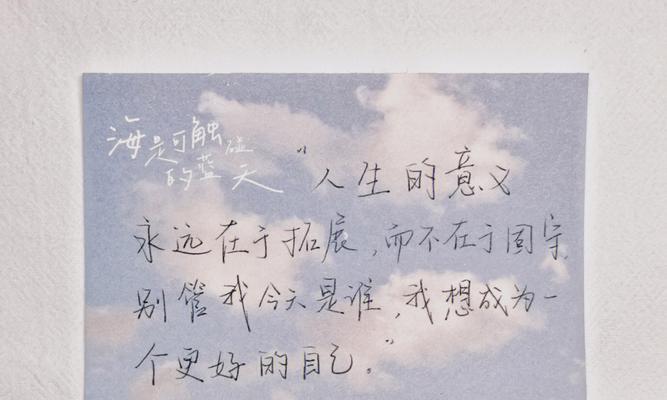 海是可触碰
的蓝天
“人生的意义
永远在于拓展，而不在于固守.
别管我今天是谁，我想成为一
个更好的自己。”